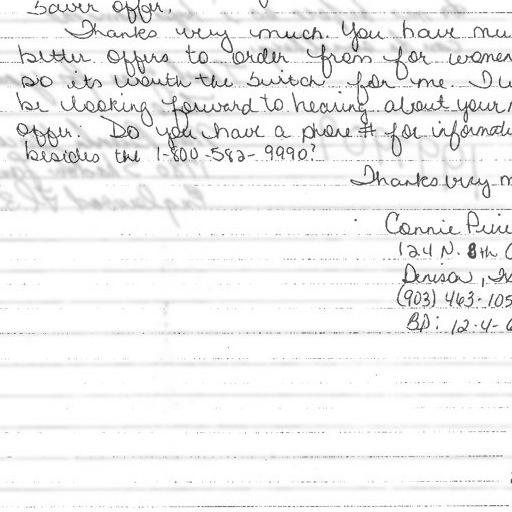 Saver offer.
Thanks very much. You have mu
better offers to order from for women
so its worth the switch for me. I'll
be looking forward to hearing about your n
offer. Do you have a phone # for informati
besides the 1-800-582-9990?
Thanks very m
Connie
124 N. 8th
Denison,
(903) 463-105
BD: 12-4-6